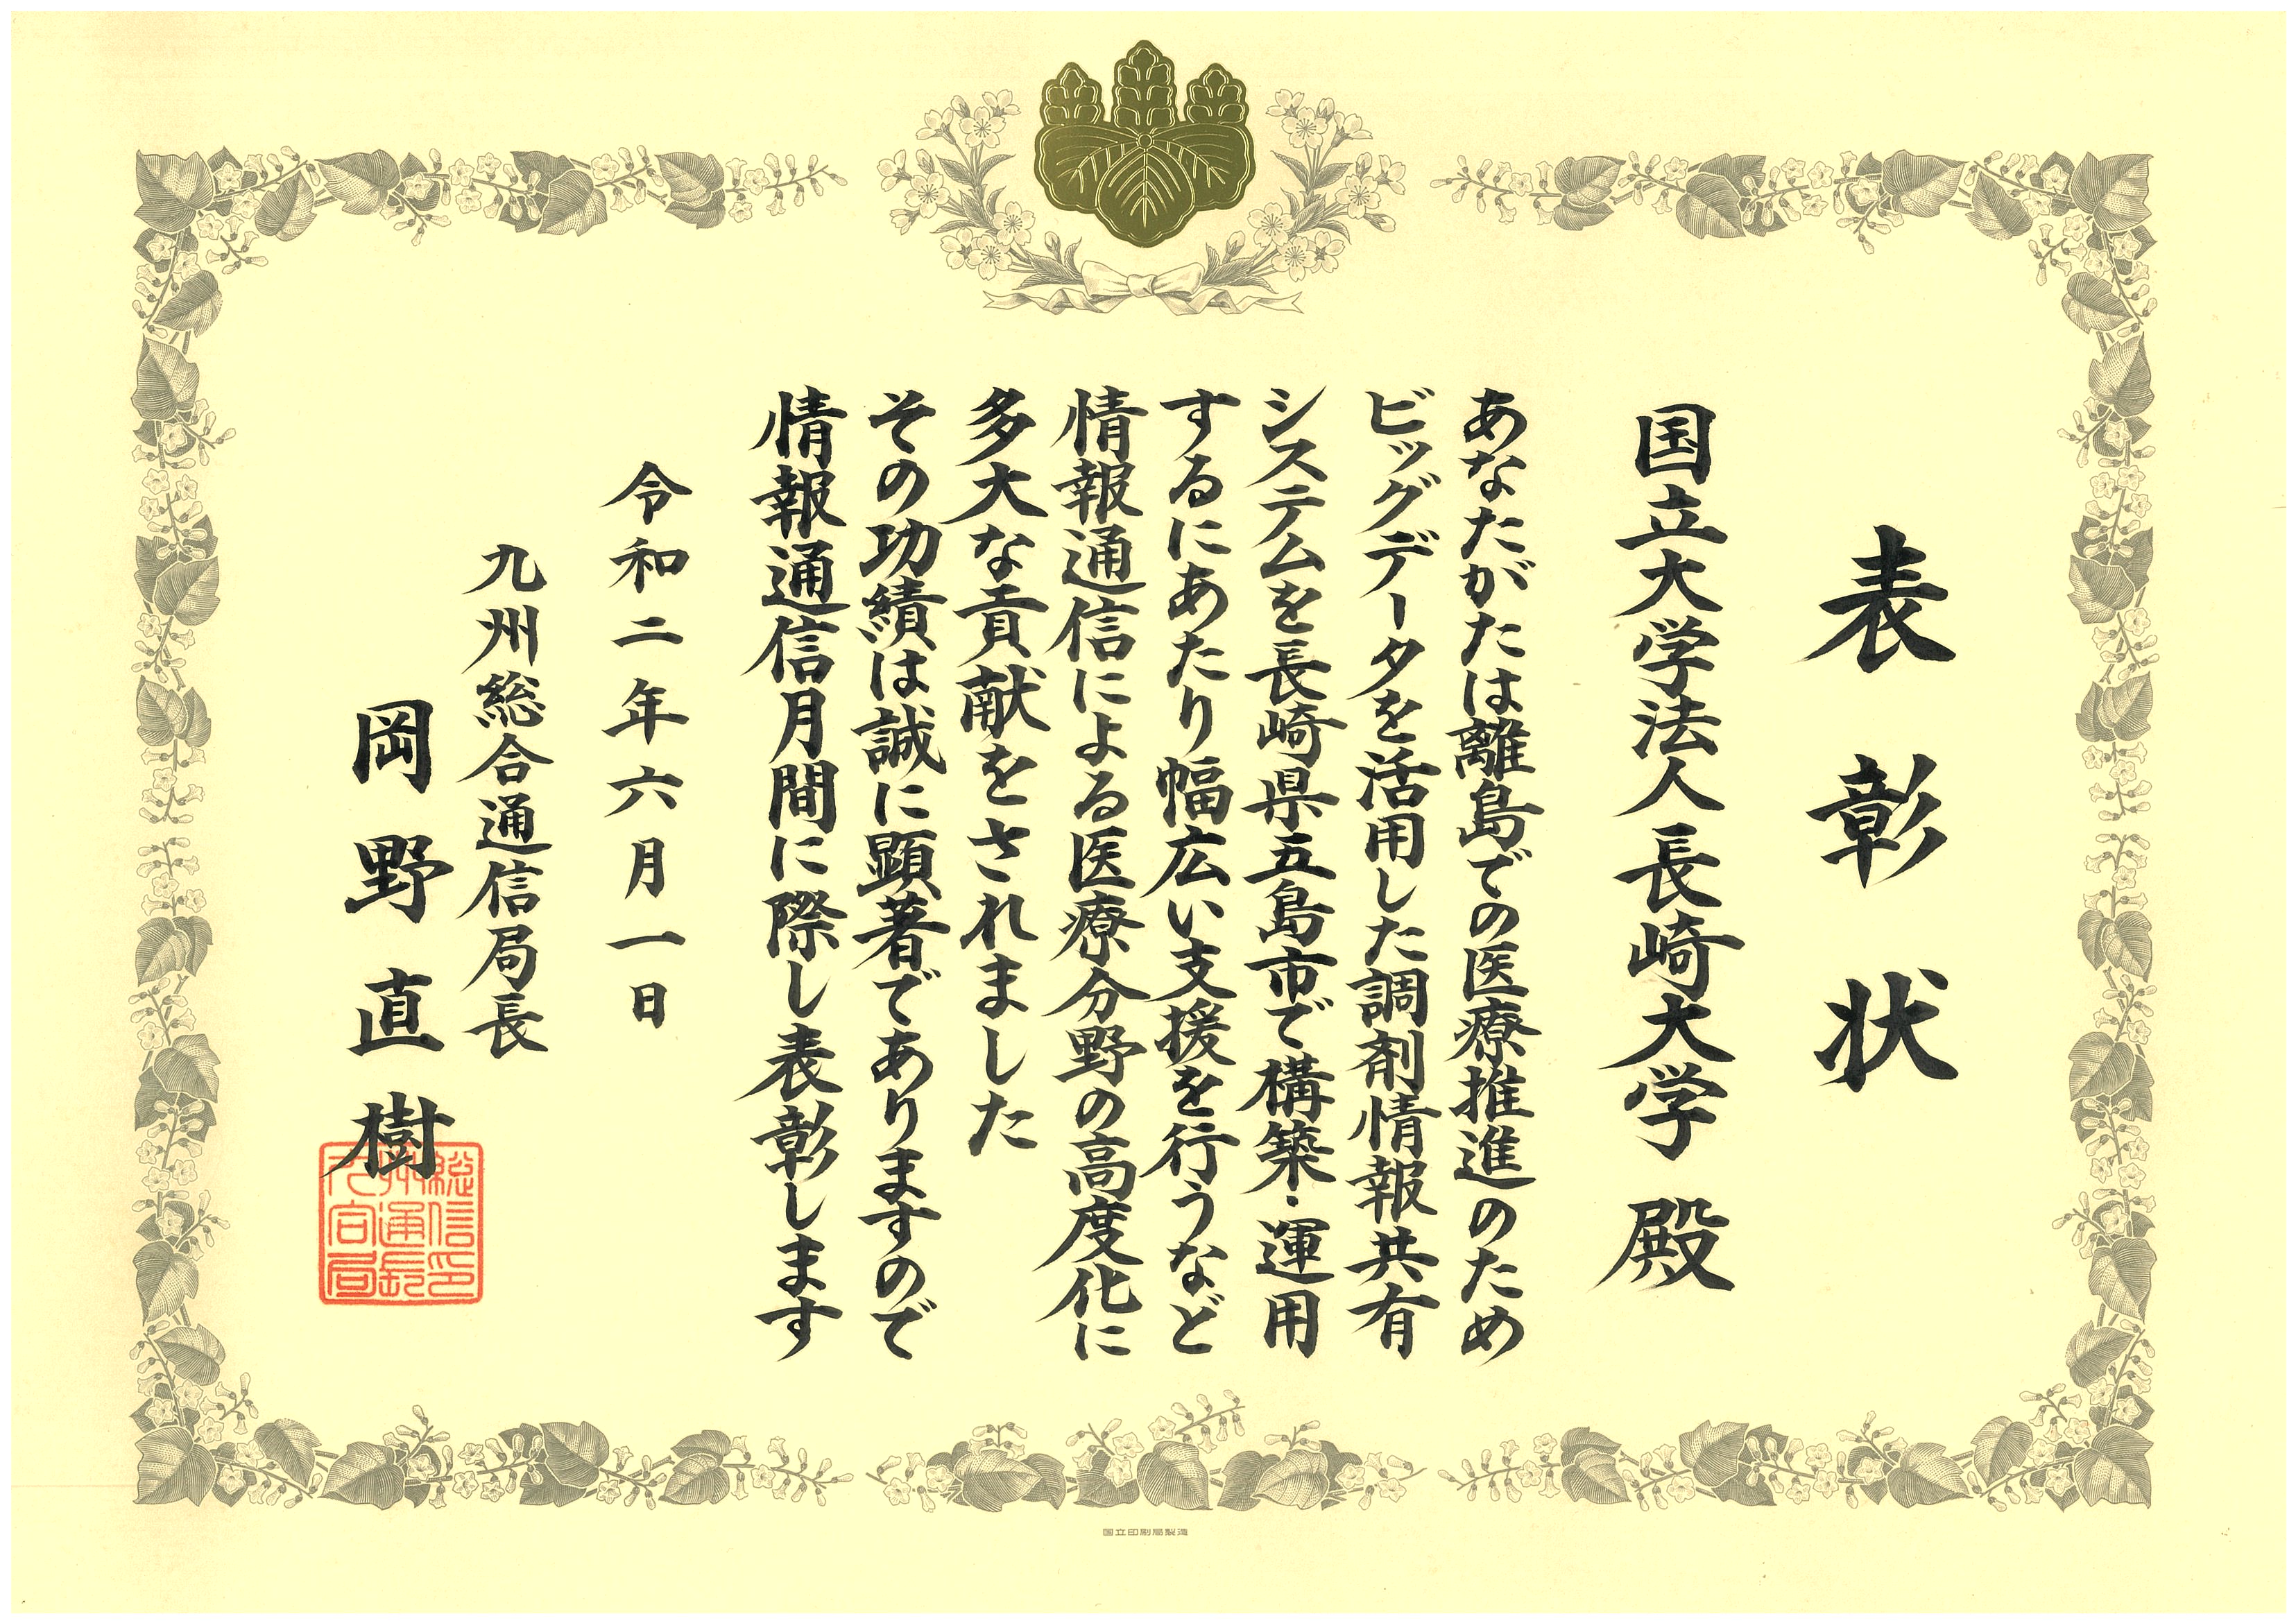 表彰状
国立大学法人長崎大学 殿
あなたがたは離島での医療推進のため
ビッグデータを活用した調剤情報共有
システムを長崎県五島市で構築・運用
するにあたり幅広い支援を行うなど
情報通信による医療分野の高度化に
多大な貢献をされました
その功績は誠に顕著でありますので
情報通信月間に際し表彰します
令和二年六月一日
九州総合通信局長
岡野直樹
国立印刷局製造